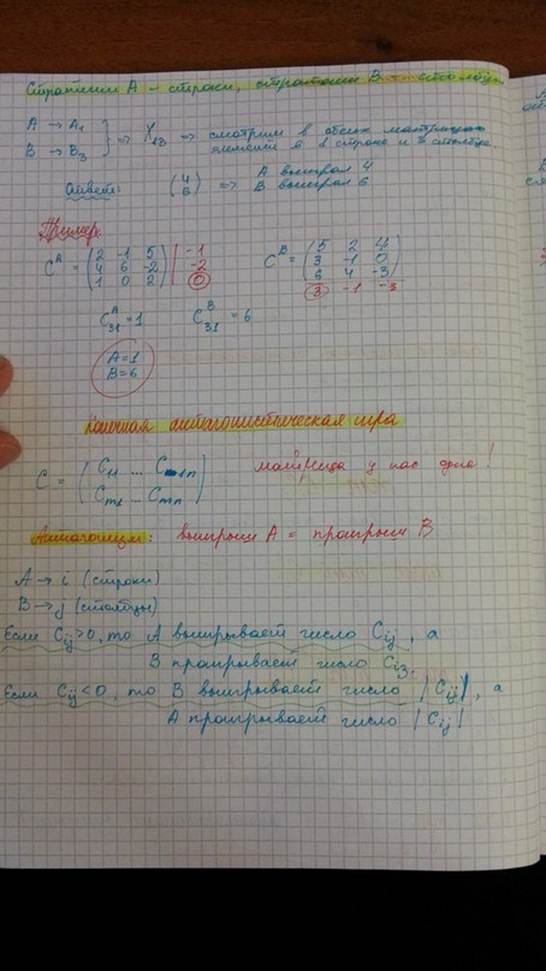 Стратегии A – строки, стратегии B – столбцы
A → A₁
B → B₃ } ⇒ X₁₃ ⇒ смотрим в обеих матрицах
элемент в строке и столбце.
Ответ: (4 6) ⇒ A выиграл 4
B выиграл 6
Пример.
Cᴬ = (2 -1 5 | -1
4 6 -2 | -2
1 0 2) | 0
Cᴮ = (5 2 4
3 -1 0
6 4 -3)
3 -1 -3
Cᴬ₃₁ = 1 Cᴮ₃₁ = 6
A = 1
B = 6
Конечная антагонистическая игра
C = (C₁₁ ... C₁ₙ
Cₘ₁ ... Cₘₙ)
матрица у нас одна!
Антагонизм: выигрыш A = проигрыш B
A → i (строки)
B → j (столбцы)
Если Cij > 0, то A выигрывает число Cij, а
B проигрывает число Ciз.
Если Cij < 0, то B выигрывает число |Cij|, а
A проигрывает число |Cij|